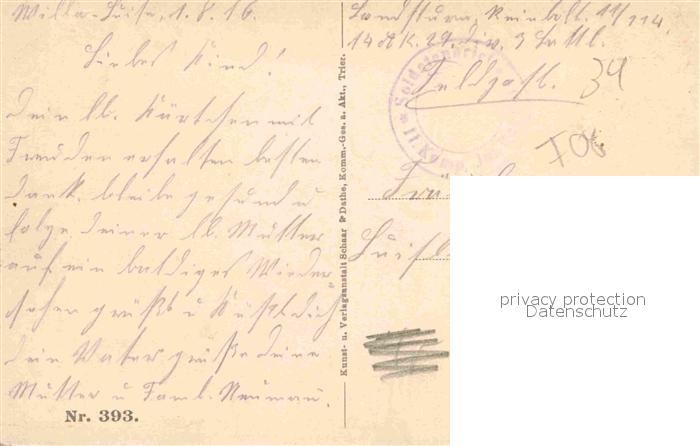 Villa-Luise, 1.8.16.
Liebes Kind!
Dein lb. Kärtchen mit
Freuden erhalten besten
Dank. bleibe gesund u
folge deiner lb. Mutter
auf ein baldiges Wieder
sehen grüßt u küßt dich
dein Vater grüße deine
Mutter u Faml. Neuman.
Nr. 393.
Kunst- u. Verlagsanstalt Schaar & Dathe, Komm.-Ges. a. Akt., Trier.
Landsturm. Reinbolt. 11/114.
14 A K. 29. Div. 3 Battl.
Feldpost.
34
Soldatenbrief
11. Komp.
privacy protection
Datenschutz